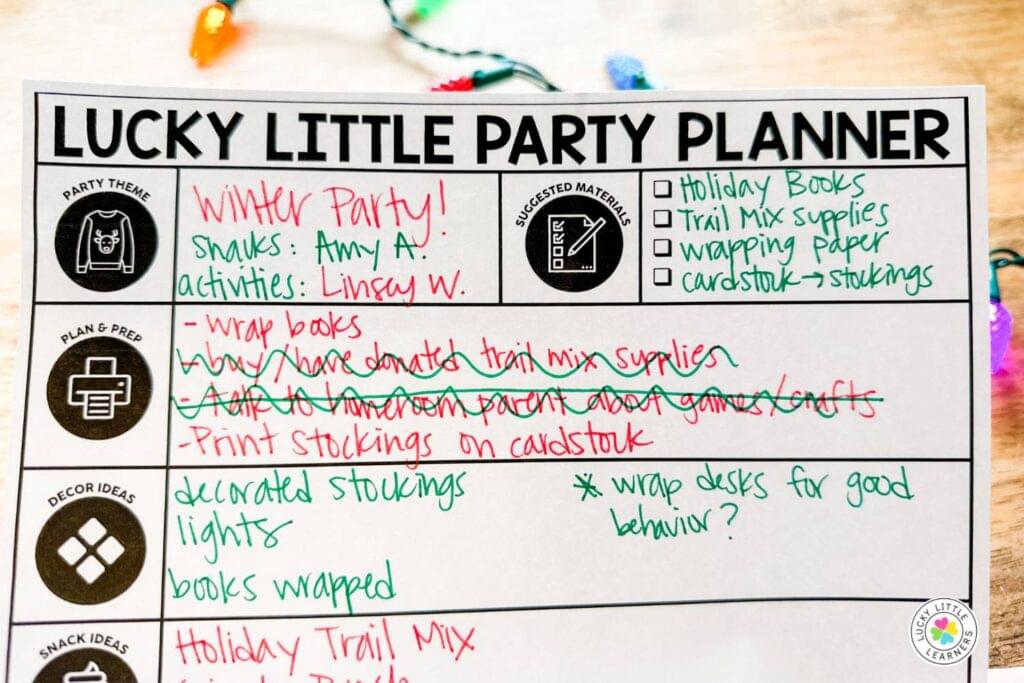 LUCKY LITTLE PARTY PLANNER
PARTY THEME
Winter Party!
snacks: Amy A.
activities: Linsey W.
SUGGESTED MATERIALS
Holiday Books
Trail Mix supplies
wrapping paper
cardstock → stockings
PLAN & PREP
- wrap books
- buy/have donated trail mix supplies
- talk to homeroom parent about games/crafts
- Print stockings on cardstock
DECOR IDEAS
decorated stockings
lights
books wrapped
* wrap desks for good
behavior?
SNACK IDEAS
Holiday Trail Mix
LUCKY LITTLE
LEARNERS